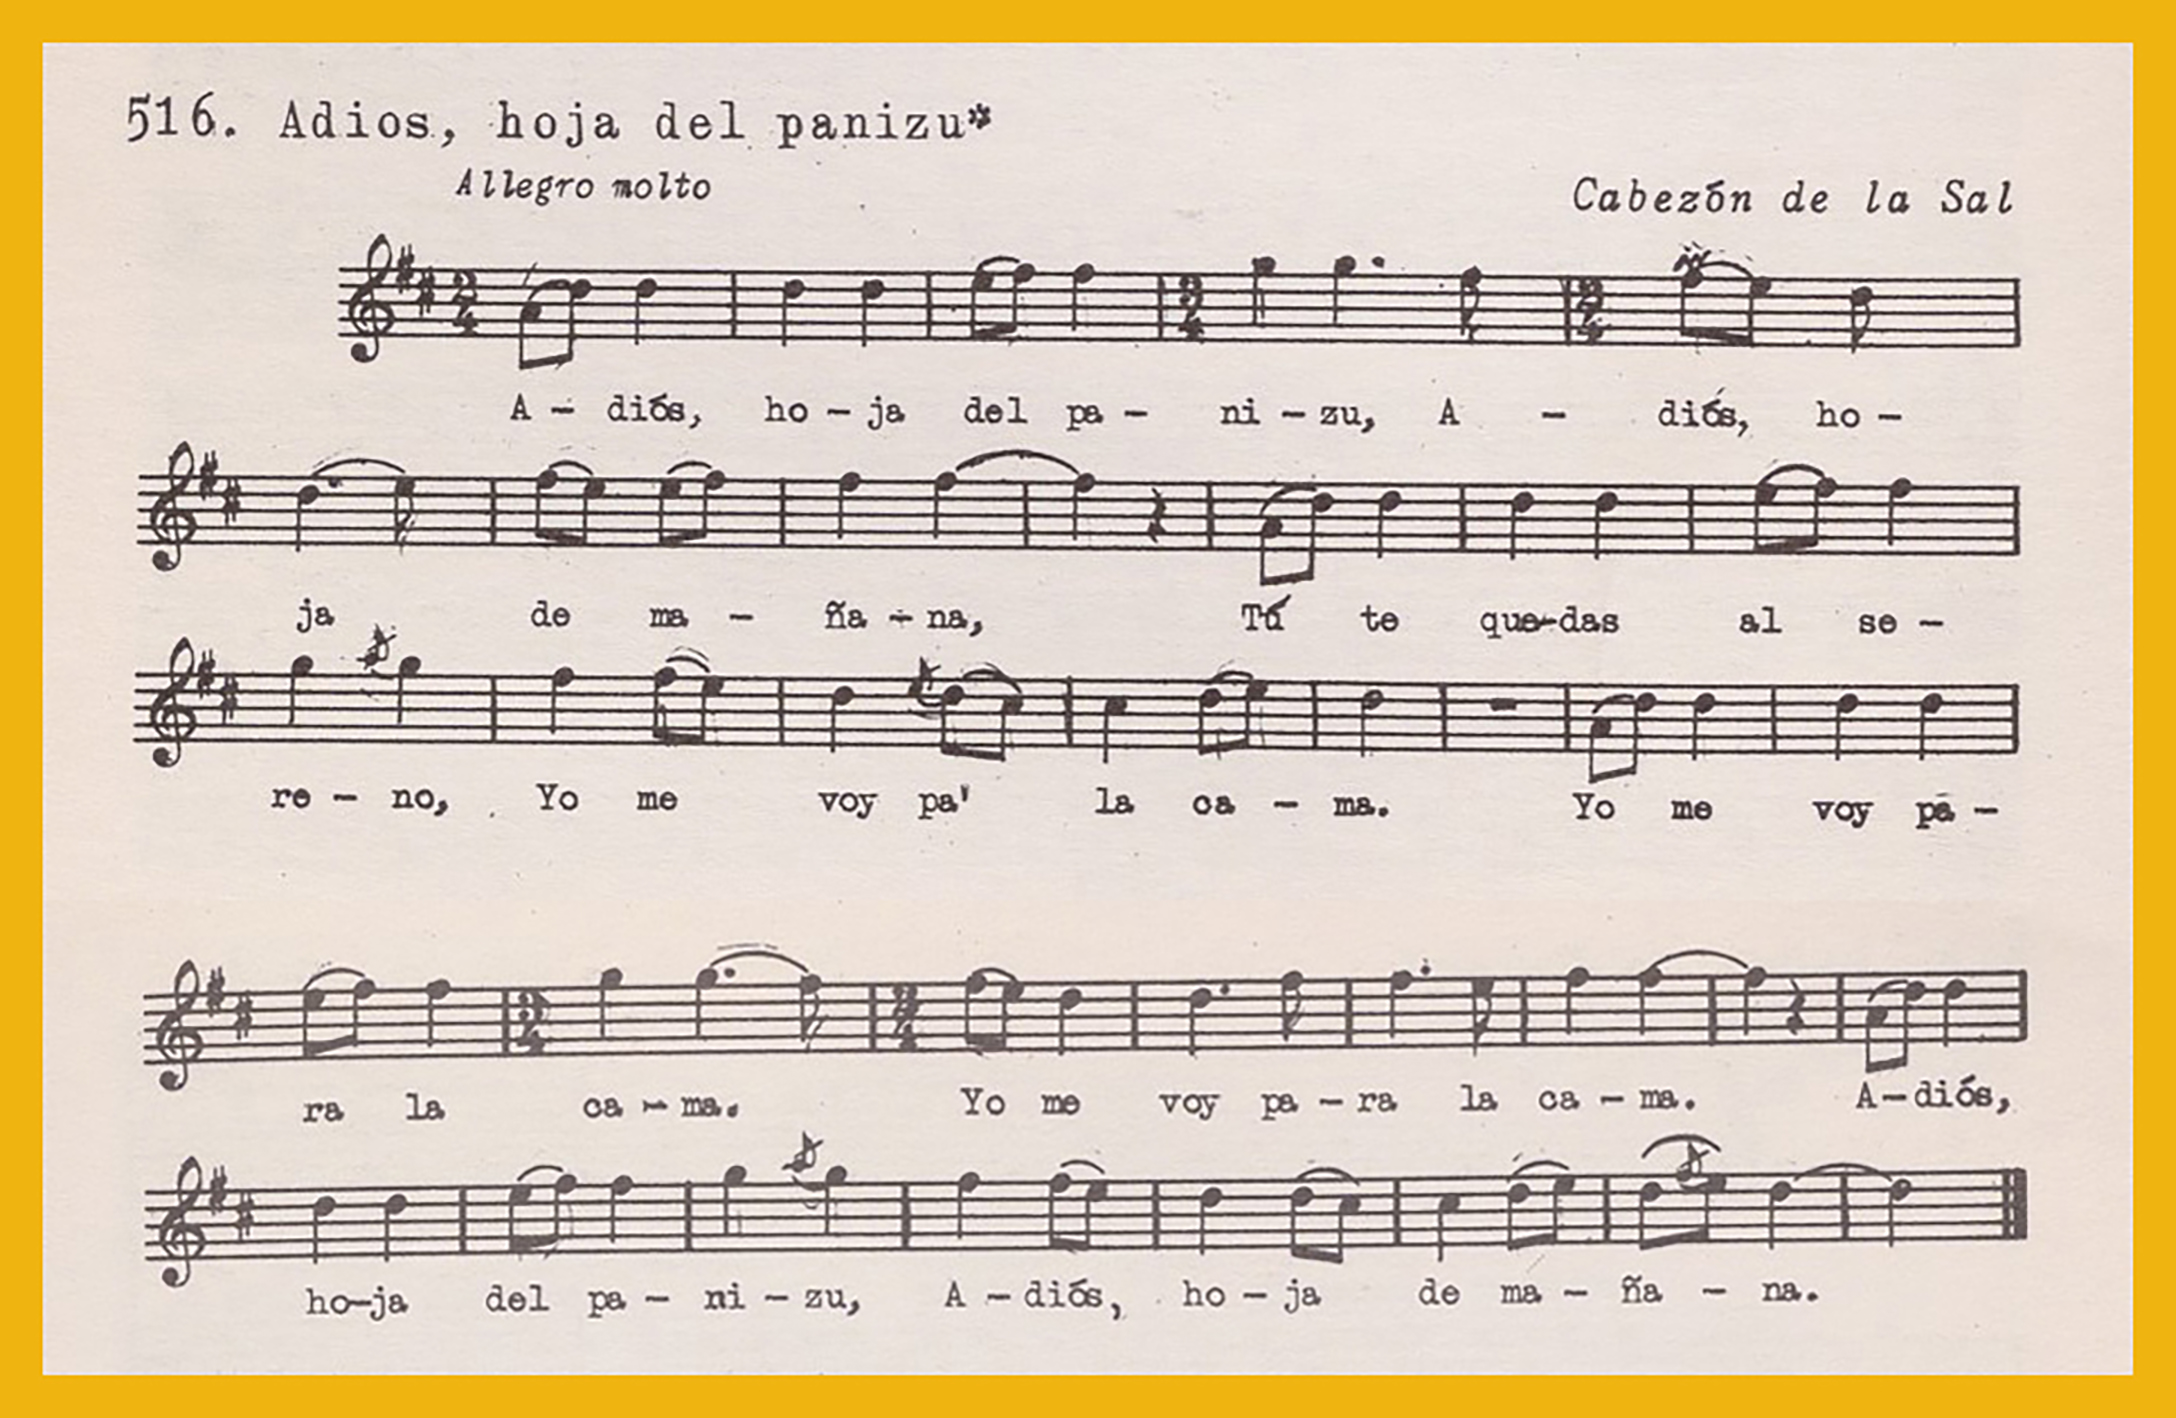 516. Adios, hoja del panizu*
Allegro molto
Cabezón de la Sal
A - diós, ho - ja del pa - ni - zu, A - diós, ho -
ja de ma - ña - na, Tú te que-das al se -
re - no, Yo me voy pa' la ca - ma. Yo me voy pa -
ra la ca - ma. Yo me voy pa - ra la ca - ma. A - diós,
ho-ja del pa - ni - zu, A - diós, ho - ja de ma - ña - na.